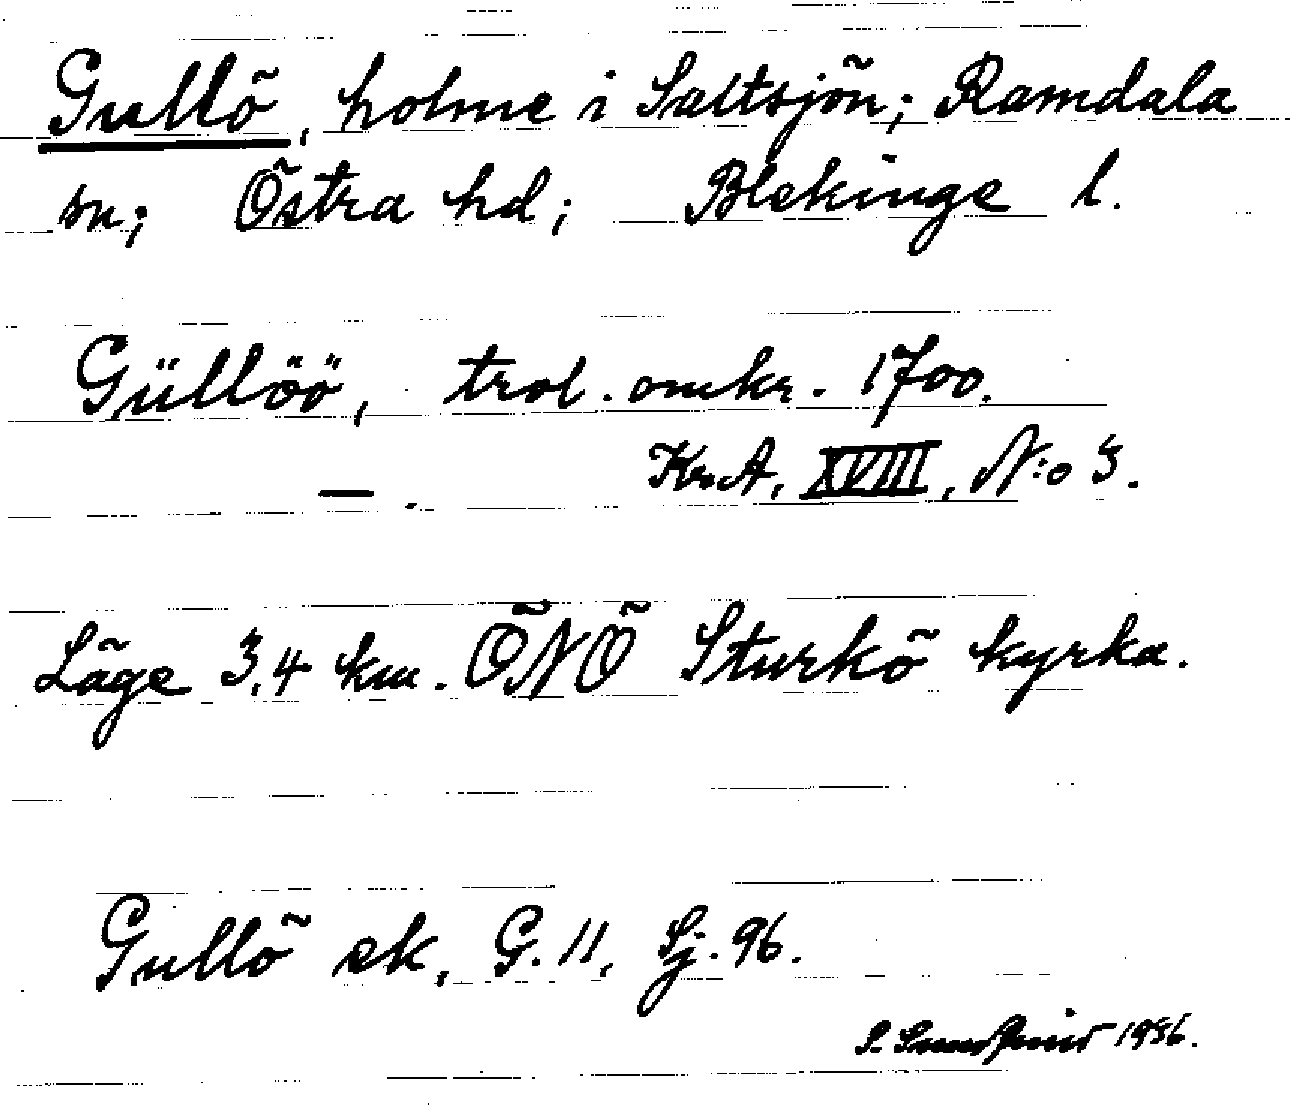 Gullö, holme i Saltsjön; Ramdala
sn; Östra hd; Blekinge l.
Güllöö, trol. omkr. 1700.
— . Kr.A, XVIII, N:o 3.
Läge 3,4 km. ÖNÖ Sturkö kyrka.
Gullö ek, G. 11, Sj. 96.
1936.